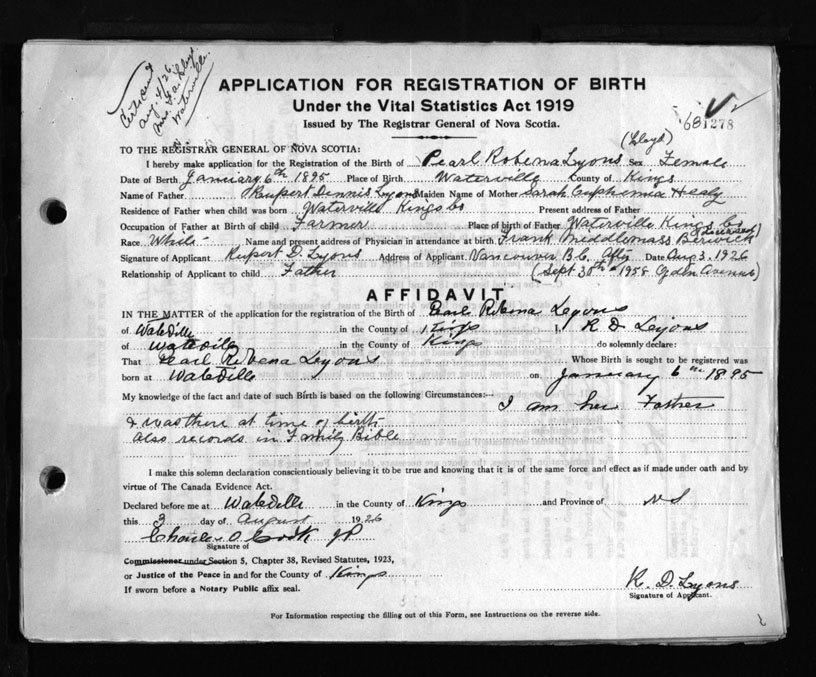 Certificate
Aug 4/26
Mrs.
Waterville
APPLICATION FOR REGISTRATION OF BIRTH
Under the Vital Statistics Act 1919
Issued by The Registrar General of Nova Scotia.
681278
TO THE REGISTRAR GENERAL OF NOVA SCOTIA:
(Lloyd)
I hereby make application for the Registration of the Birth of Pearl Robena Lyons Sex Female
Date of Birth January 6th 1895 Place of Birth Waterville County of Kings
Name of Father Rupert Dennis Lyons Maiden Name of Mother Sarah Euphemia Healy
Residence of Father when child was born Waterville Kings Co Present address of Father
Occupation of Father at Birth of child Farmer Place of birth of Father Waterville Kings Co
Race White Name and present address of Physician in attendance at birth Frank Middlemass Berwick (Deceased)
Signature of Applicant Rupert D. Lyons Address of Applicant Vancouver B.C. Date Aug 3, 1926
Relationship of Applicant to child Father (Sept. 30th 1958
AFFIDAVIT
IN THE MATTER of the application for the registration of the Birth of Pearl Robena Lyons
of Waterville in the County of Kings I, R D Lyons
of Waterville in the County of Kings do solemnly declare:
That Pearl Robena Lyons Whose Birth is sought to be registered was
born at Waterville on January 6th 1895
My knowledge of the fact and date of such Birth is based on the following Circumstances:-- I am her Father
& was there at time of birth
also records in Family Bible
I make this solemn declaration conscientiously believing it to be true and knowing that it is of the same force and effect as if made under oath and by
virtue of The Canada Evidence Act.
Declared before me at Waterville in the County of Kings and Province of N S
this 3 day of August 1926
Charles O. Cook JP
Signature of
Commissioner under Section 5, Chapter 38, Revised Statutes, 1923,
or Justice of the Peace in and for the County of Kings
If sworn before a Notary Public affix seal.
R. D. Lyons
Signature of Applicant.
For Information respecting the filling out of this Form, see Instructions on the reverse side.